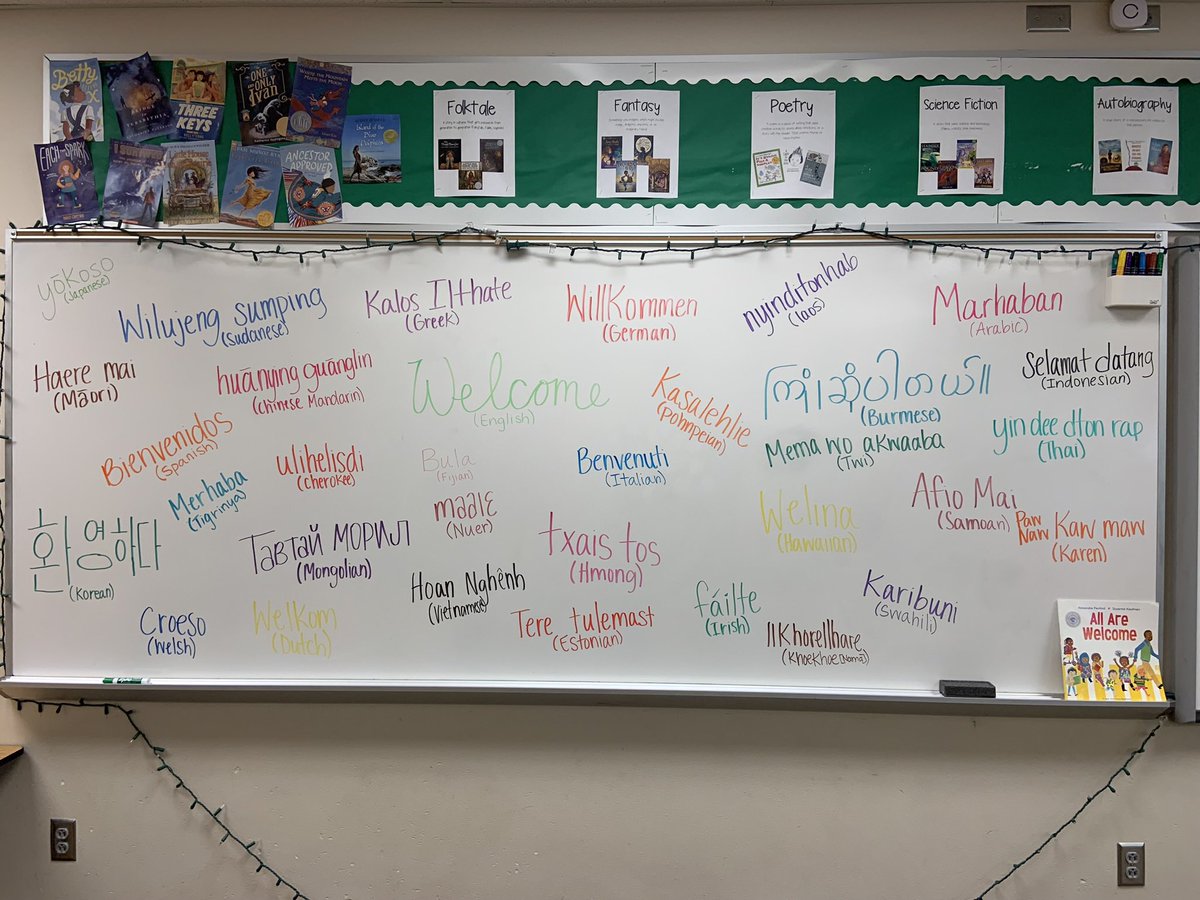 Betty
THREE
KEYS
THE
ONE
AND
ONLY
Ivan
WHERE THE MOUNTAIN
MEETS THE MOON
Island of the
Blue Dolphins
EACH
SPARK
ANCESTOR
APPROVED
Folktale
Fantasy
Poetry
Science Fiction
Autobiography
yōkoso
(Japanese)
Wilujeng sumping
(Sudanese)
Kalos Ilthate
(Greek)
Willkommen
(German)
nyinditonhab
(laos)
Marhaban
(Arabic)
Haere mai
(Māori)
huānying guānglin
(Chinese Mandarin)
Welcome
(English)
Kasalehlie
(Pohnpeian)
ကြိုဆိုပါတယ်။
(Burmese)
Selamat datang
(Indonesian)
Bienvenidos
(Spanish)
ulihelisdi
(Cherokee)
Bula
(Fijian)
Benvenuti
(Italian)
Mema wo akwaaba
(Twi)
yin dee dton rap
(Thai)
Merhaba
(Tigrinya)
maalɛ
(Nuer)
Welina
(Hawaiian)
Afio Mai
(Samoan)
환영하다
(Korean)
Тавтай МОРИЛ
(Mongolian)
txais tos
(Hmong)
Paw
Naw
Kaw maw
(Karen)
Hoan Nghênh
(Vietnamese)
Croeso
(Welsh)
Welkom
(Dutch)
Tere tulemast
(Estonian)
fáilte
(Irish)
Karibuni
(Swahili)
llKhorellhare
(KhoeKhoe [Nama])
Alexandra Penfold • Suzanne Kaufman
All Are
Welcome